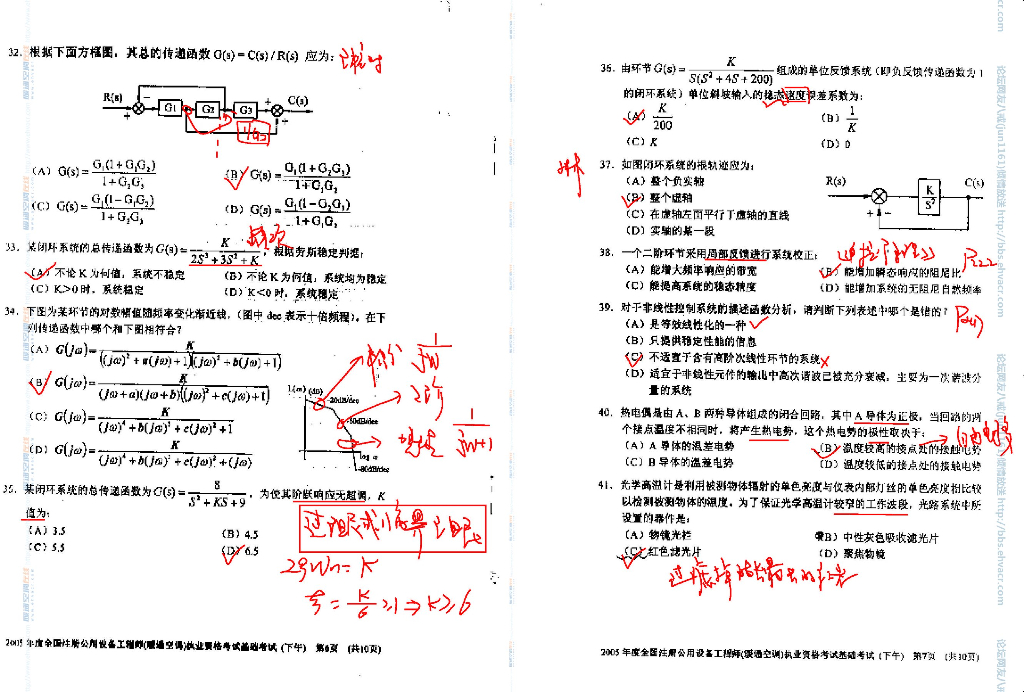 32. 根据下面方框图，其总的传递函数 G(s) = C(s) / R(s) 应为：
R(s)
G1
G2
G3
C(s)
1/G3
(A) G(s)= G₁(1+G₂G₃) / 1+G₂G₃
(B) G(s)= G₁(1+G₂G₃) / 1+G₁G₂
(C) G(s)= G₁(1-G₁G₂) / 1+G₂G₃
(D) G(s)= G₁(1-G₂G₃) / 1+G₁G₂
33. 某闭环系统的总传递函数为 G(s)= K / 2S³+3S²+K ，根据劳斯稳定判据：
(A) 不论 K 为何值，系统不稳定
(B) 不论 K 为何值，系统均为稳定
(C) K>0 时，系统稳定
(D) K<0 时，系统稳定
34. 下图为某环节的对数幅值随频率变化渐近线，(图中 dec 表示十倍频程)，在下
列传递函数中哪个和下图相符合？
(A) G(jω)= K / ((jω)²+a(jω)+1)((jω)²+b(jω)+1)
(B) G(jω)= K / (jω)(jω+a)(jω+b)((jω)²+c(jω)+1)
(C) G(jω)= K / (jω)⁴+b(jω)²+c(jω)+1
(D) G(jω)= K / (jω)⁴+b(jω)³+c(jω)²+(jω)
L(ω) (db)
-20dB/dec
-60dB/dec
log ω
-80dB/dec
积分 1/jω
2阶
1/jω+1
35. 某闭环系统的总传递函数为 G(s)= 8 / S²+KS+9 ，为使其阶跃响应无超调，K
值为：
(A) 3.5
(B) 4.5
(C) 5.5
(D) 6.5
过阻尼或临界阻尼
2ξWn = K
ξ = K/6 ≥1 ⇒ K≥6
2005 年度全国注册公用设备工程师(暖通空调)执业资格考试基础考试 (下午) 第6页 (共10页)
36. 由环节 G(s)= K / S(S²+4S+200) 组成的单位反馈系统 (即负反馈传递函数为 1
的闭环系统) 单位斜坡输入的稳态速度误差系数为：
(A) K/200
(B) 1/K
(C) K
(D) 0
37. 如图闭环系统的根轨迹应为：
(A) 整个负实轴
(B) 整个虚轴
(C) 在虚轴左面平行于虚轴的直线
(D) 实轴的某一段
R(s)
K/S²
C(s)
38. 一个二阶环节采用局部反馈进行系统校正：
(A) 能增大频率响应的带宽
(B) 能增加瞬态响应的阻尼比
(C) 能提高系统的稳态精度
(D) 能增加系统的无阻尼自然频率
39. 对于非线性控制系统的描述函数分析，请判断下列表述中哪个是错的？
(A) 是等效线性化的一种
(B) 只提供稳定性能的信息
(C) 不适宜于含有高阶次线性环节的系统
(D) 适宜于非线性元件的输出中高次谐波已被充分衰减，主要为一次谐波分
量的系统
40. 热电偶是由 A、B 两种导体组成的闭合回路，其中 A 导体为正极，当回路的两
个接点温度不相同时，将产生热电势，这个热电势的极性取决于：
(A) A 导体的温差电势
(B) 温度较高的接点处的接触电势
(C) B 导体的温差电势
(D) 温度较低的接点处的接触电势
41. 光学高温计是利用被测物体辐射的单色亮度与仪表内部灯丝的单色亮度相比较
以检测被测物体的温度，为了保证光学高温计较窄的工作波段，光路系统中所
设置的器件是：
(A) 物镜光栏
(B) 中性灰色吸收滤光片
(C) 红色滤光片
(D) 聚焦物镜
2005 年度全国注册公用设备工程师(暖通空调)执业资格考试基础考试 (下午) 第7页 (共10页)
论坛网友八戒(jun1161)倾情放送 http://bbs.ehvacr.com